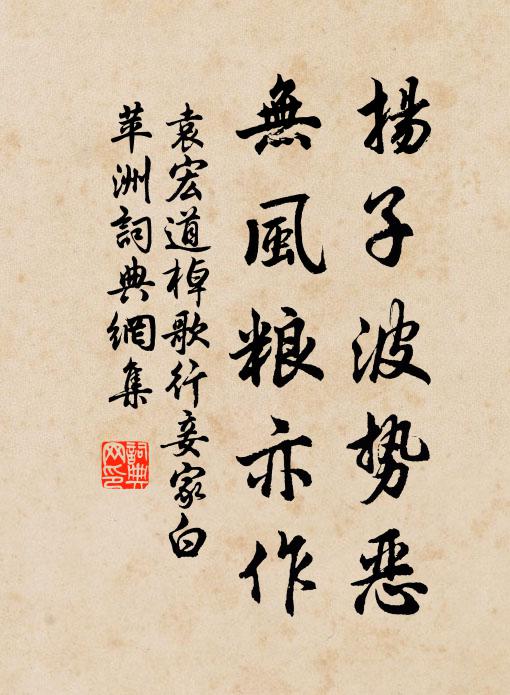 揚子波势恶
無風粮亦作
袁宏道棹歌行妾家白
苹洲詞典網集
詞典
网印